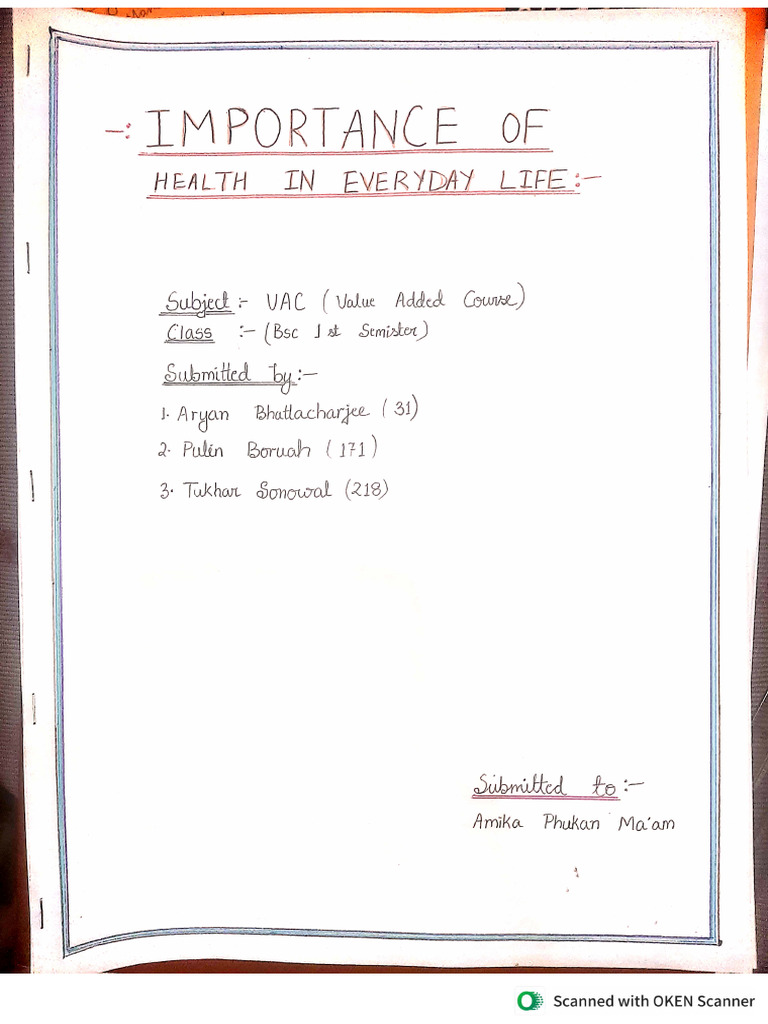 -: IMPORTANCE OF
HEALTH IN EVERYDAY LIFE:-
Subject :- VAC (Value Added Course)
Class :- (Bsc 1st Semister)
Submitted by:-
1. Aryan Bhattacharjee (31)
2. Pulin Boruah (171)
3. Tukhar Sonowal (218)
Submitted to :-
Amika Phukan Ma'am
Scanned with OKEN Scanner